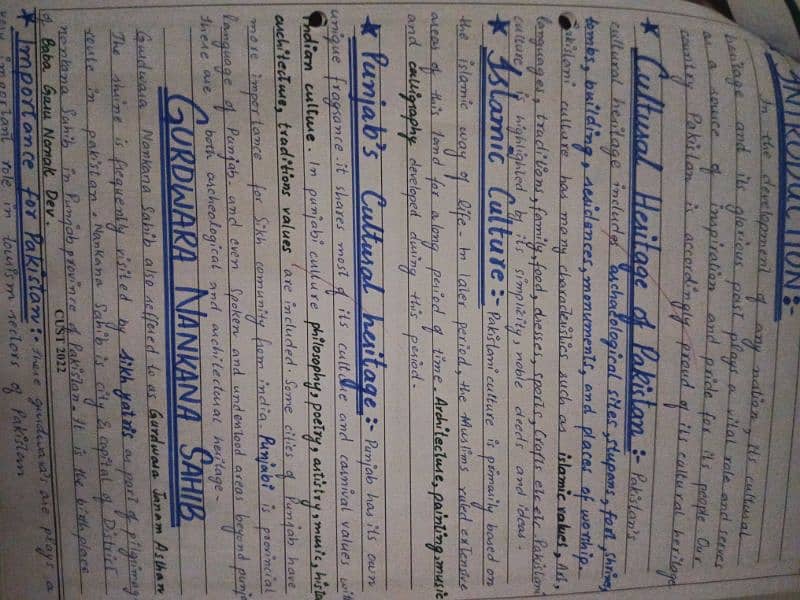 INTRODUCTION:-
In the development of any nation, its cultural
heritage and its glorious past plays a vital role and serves
as a source of inspiration and pride for its people Our
country Pakistan is accordingly proud of its cultural heritage
★ Cultural Heritage of Pakistan:- Pakistan's
cultural heritage includes archaeological sites, stupans, fort, shrines,
tombs, building, residences, monuments, and places of worship.
Pakistani culture has many characteristics such as islamic values, Art,
languages, traditions, family, food, dresses, sports, crafts etc etc Pakistani
culture is highlighted by its simplicity, noble deeds and ideas.
★ Islamic Culture:- Pakistani culture is primarily based on
the islamic way of life. In later period, the Muslims ruled extensive
areas of this land for a long period of time Architecture, painting, music
and calligraphy developed during this period.
★ Punjab's Cultural heritage:- Punjab has its own
unique fragrance it shares most of its culture and carnival values with
Indian culture. In punjabi culture philosophy, poetry, artistry, music,
architecture, traditions values are included. Some cities of Punjab have
more importance for Sikh comunity from india Punjabi is provincial
language of Punjab. and even spoken and understood areas beyond punjab
there are both archeological and architectural heritage.
GURDWARA NANKANA SAHIB
Gurdwara Nankana Sahib also reffered to as Gurdwara Janam Asthan
The shrine is frequently visited by sikh yatris as part of pilgrimage
route in pakistan. Nankana Sahib is city & capital of District
nankana Sahib in Punjab province of Pakistan. It is the birthplace
of Baba Guru Nanak Dev.
CUST 2022
★ Importance for Pakistan:- These gurdwaras are plays a
very important role in tourism sectors of Pakistan